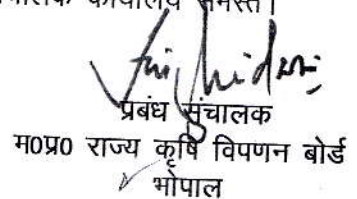 कार्यालय समस्त।
प्रबंध संचालक
म0प्र0 राज्य कृषि विपणन बोर्ड
भोपाल